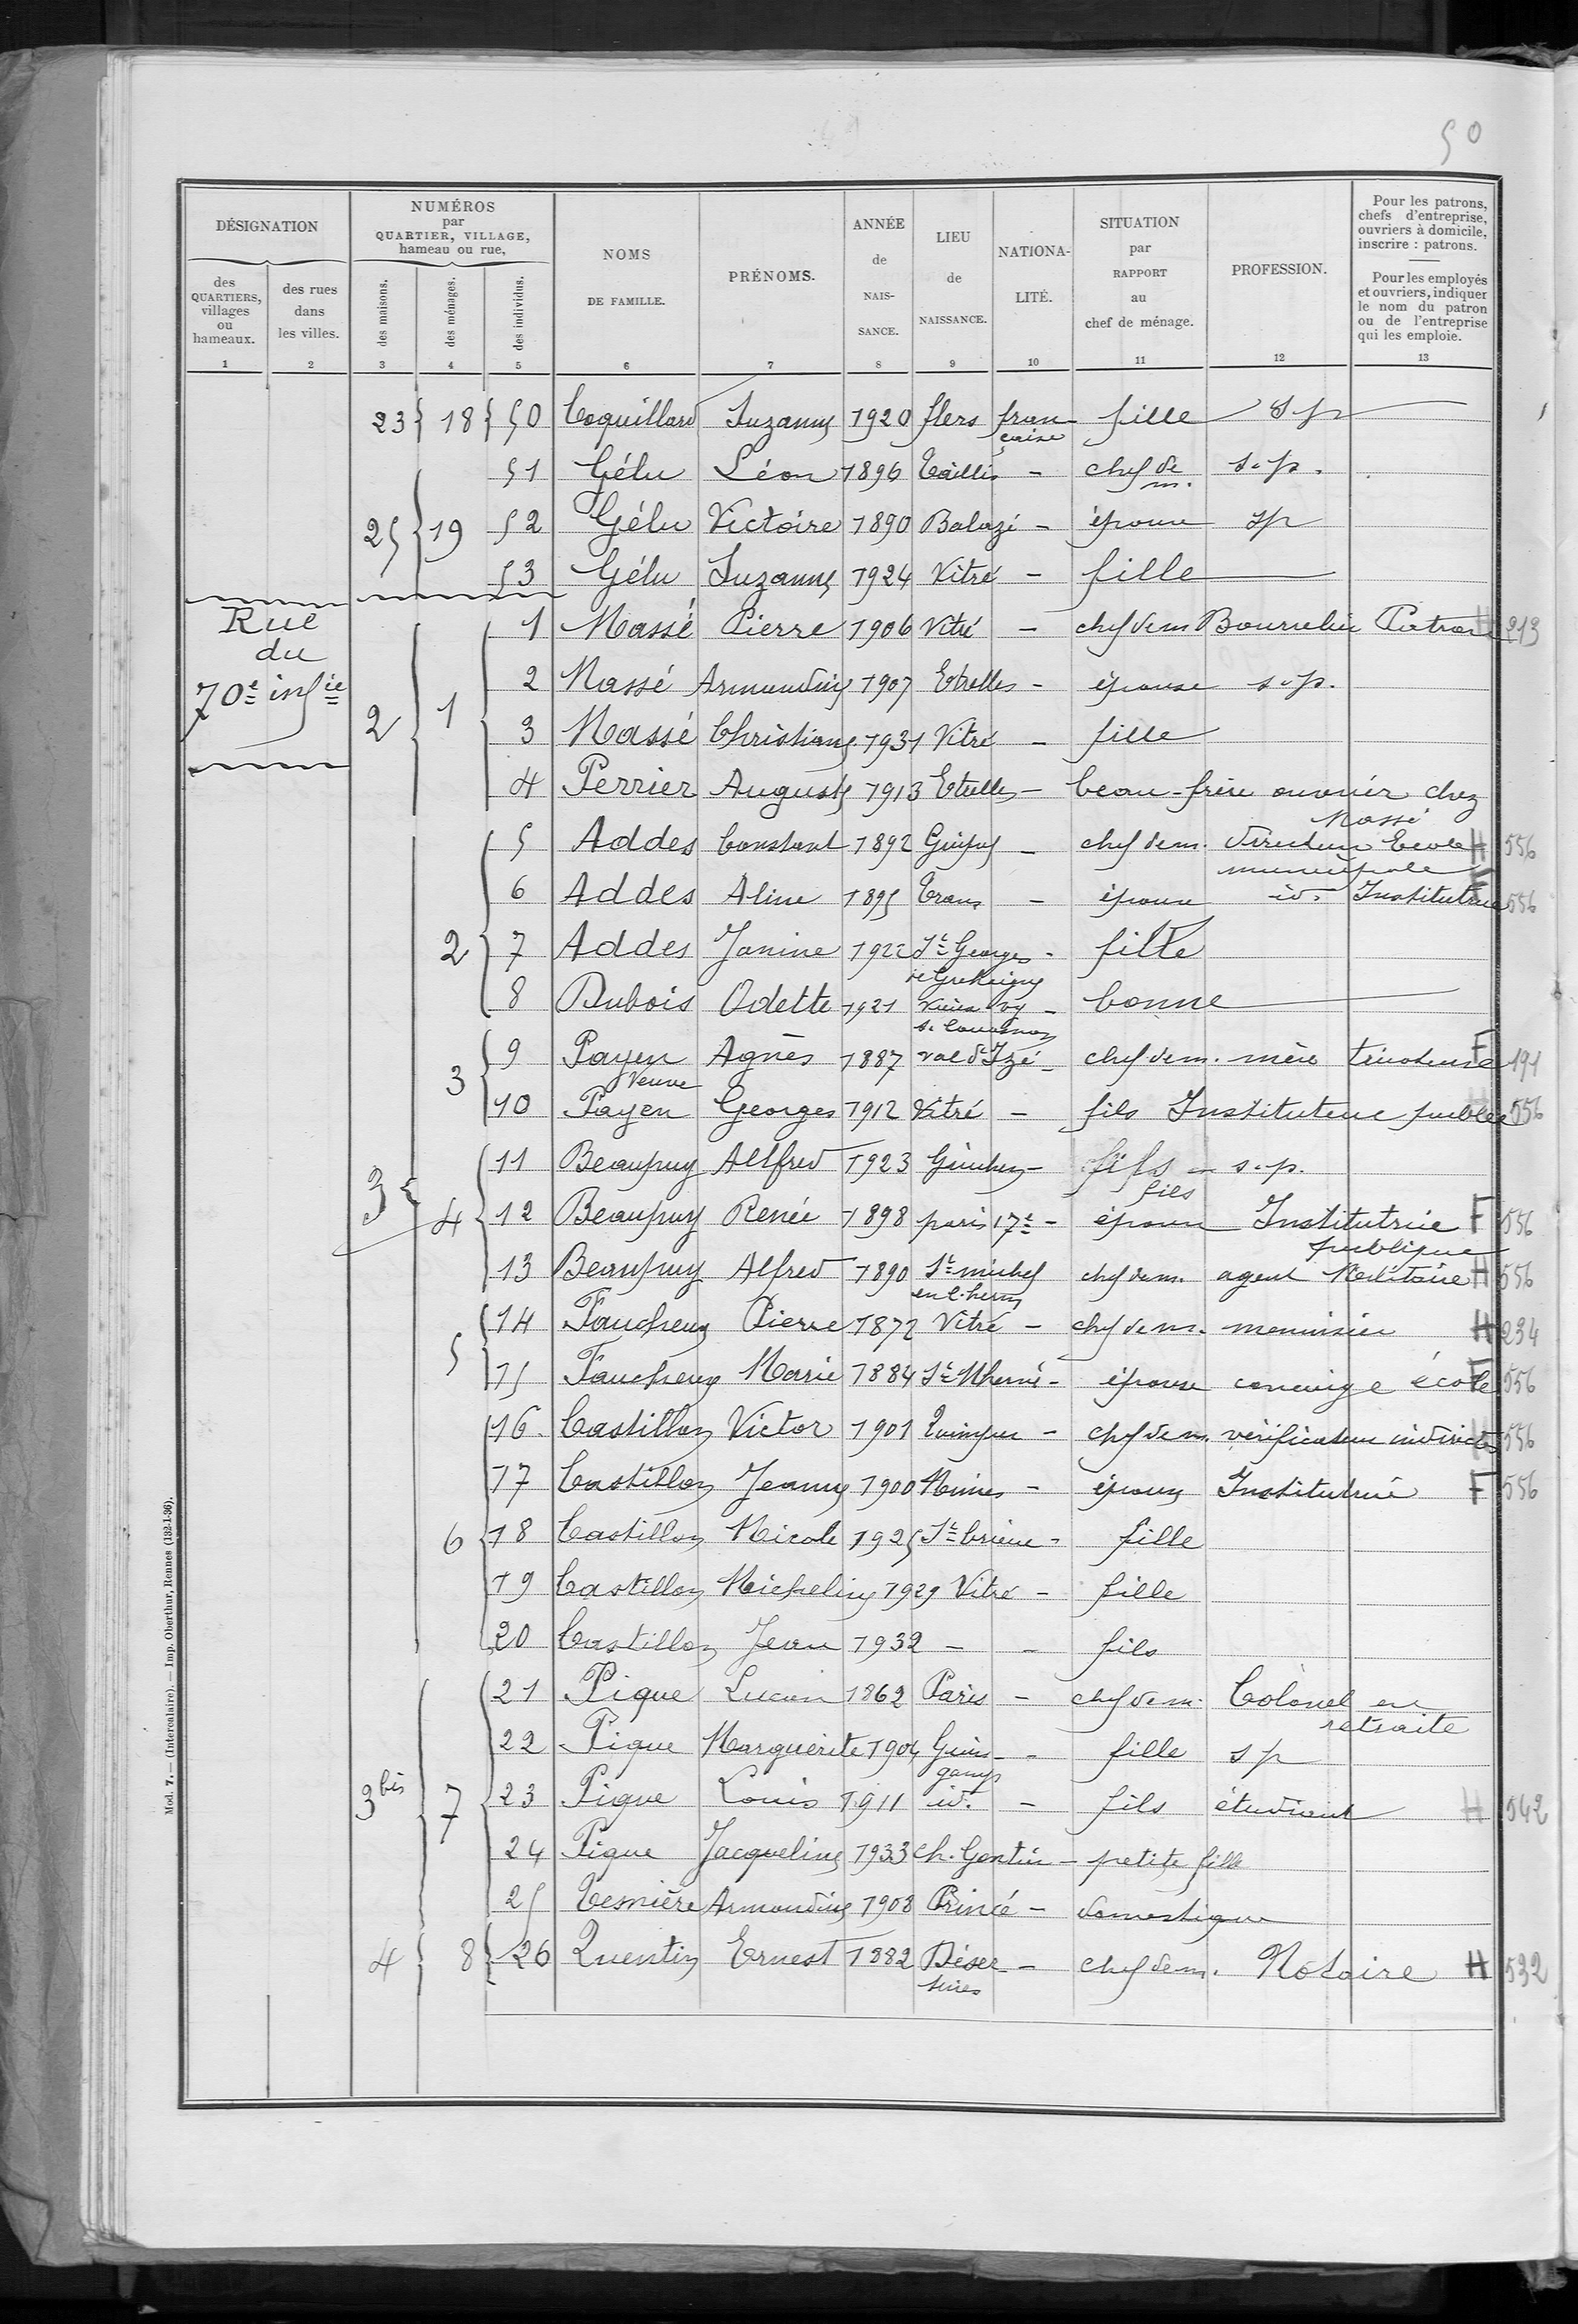 50
DÉSIGNATION
des QUARTIERS, villages ou hameaux.
des rues dans les villes.
NUMÉROS par QUARTIER, VILLAGE, hameau ou rue,
des maisons.
des ménages.
des individus.
NOMS DE FAMILLE.
PRÉNOMS.
ANNÉE de NAIS-SANCE.
LIEU de NAISSANCE.
NATIONA-LITÉ.
SITUATION par RAPPORT au chef de ménage.
PROFESSION.
Pour les patrons, chefs d'entreprise, ouvriers à domicile, inscrire : patrons.
Pour les employés et ouvriers, indiquer le nom du patron ou de l'entreprise qui les emploie.
1 2 3 4 5 6 7 8 9 10 11 12 13
23 18 50 Coquillard Suzanne 1920 flers française fille s p
51 Gélu Léon 1896 Taillis - chef de m. s.p.
25 19 52 Gélu Victoire 1890 Balazé - épouse sp
53 Gélu Suzanne 1924 Vitré - fille
Rue du 70e infie
1 Massé Pierre 1906 Vitré - chef de m Bourrelier Patron H 213
2 Massé Armandine 1907 Etrelles - épouse s.p.
2 1 3 Massé Christiane 1931 Vitré - fille
4 Perrier Auguste 1913 Etrelles - beau-frère ouvrier chez Massé
5 Addes Constant 1892 - chef de m. Directeur Ecole municipale H 556
6 Addes Aline 1895 Trans - épouse id. Institutrice 556
2 7 Addes Janine 1922 St Georges de Grehaigne - fille
8 Dubois Odette 1921 Vieux vy s. Couesnon - bonne
3 9 Payen Veuve Agnès 1887 val d'Izé - chef de m. mère tricoteuse F 191
10 Payen Georges 1912 Vitré - fils Instituteur public 556
11 Beaupuy Allfred 1923 Guichen - fils fils - s.p.
3 4 12 Beaupuy Renée 1898 paris 17e - épouse Institutrice publique F 556
13 Beaupuy Alfred 1890 St michel en l'herm chef de m. agent Militaire H 556
14 Faucheux Pierre 1872 Vitré - chef de m. menuisier H 234
5 15 Faucheux Marie 1884 St Mhervé - épouse concierge école F 556
16 Castillon Victor 1901 Quimper - chef de m. vérificateur indirectes 556
17 Castillon Jeanne 1900 - épouse Institutrice F 556
6 18 Castillon Nicole 1925 St brieuc - fille
19 Castillon Micheline 1929 Vitré - fille
20 Castillon Jean 1932 - - fils
21 Pique Lucien 1862 Paris - chef de m. Colonel en retraite
22 Pique Marguerite 1904 Guingamp - fille s p
3bis 7 23 Pique Louis 1911 id. - fils étudiant H 542
24 Pique Jacqueline 1933 ch. Gontier - petite fille
25 Tesnière Armandine 1908 Princé - domestique
4 8 26 Quentin Ernest 1882 Désertines - chef de m. Notaire H 532
Mod. 7. — (Intercalaire). — Imp. Oberthur, Rennes (132-1-36).